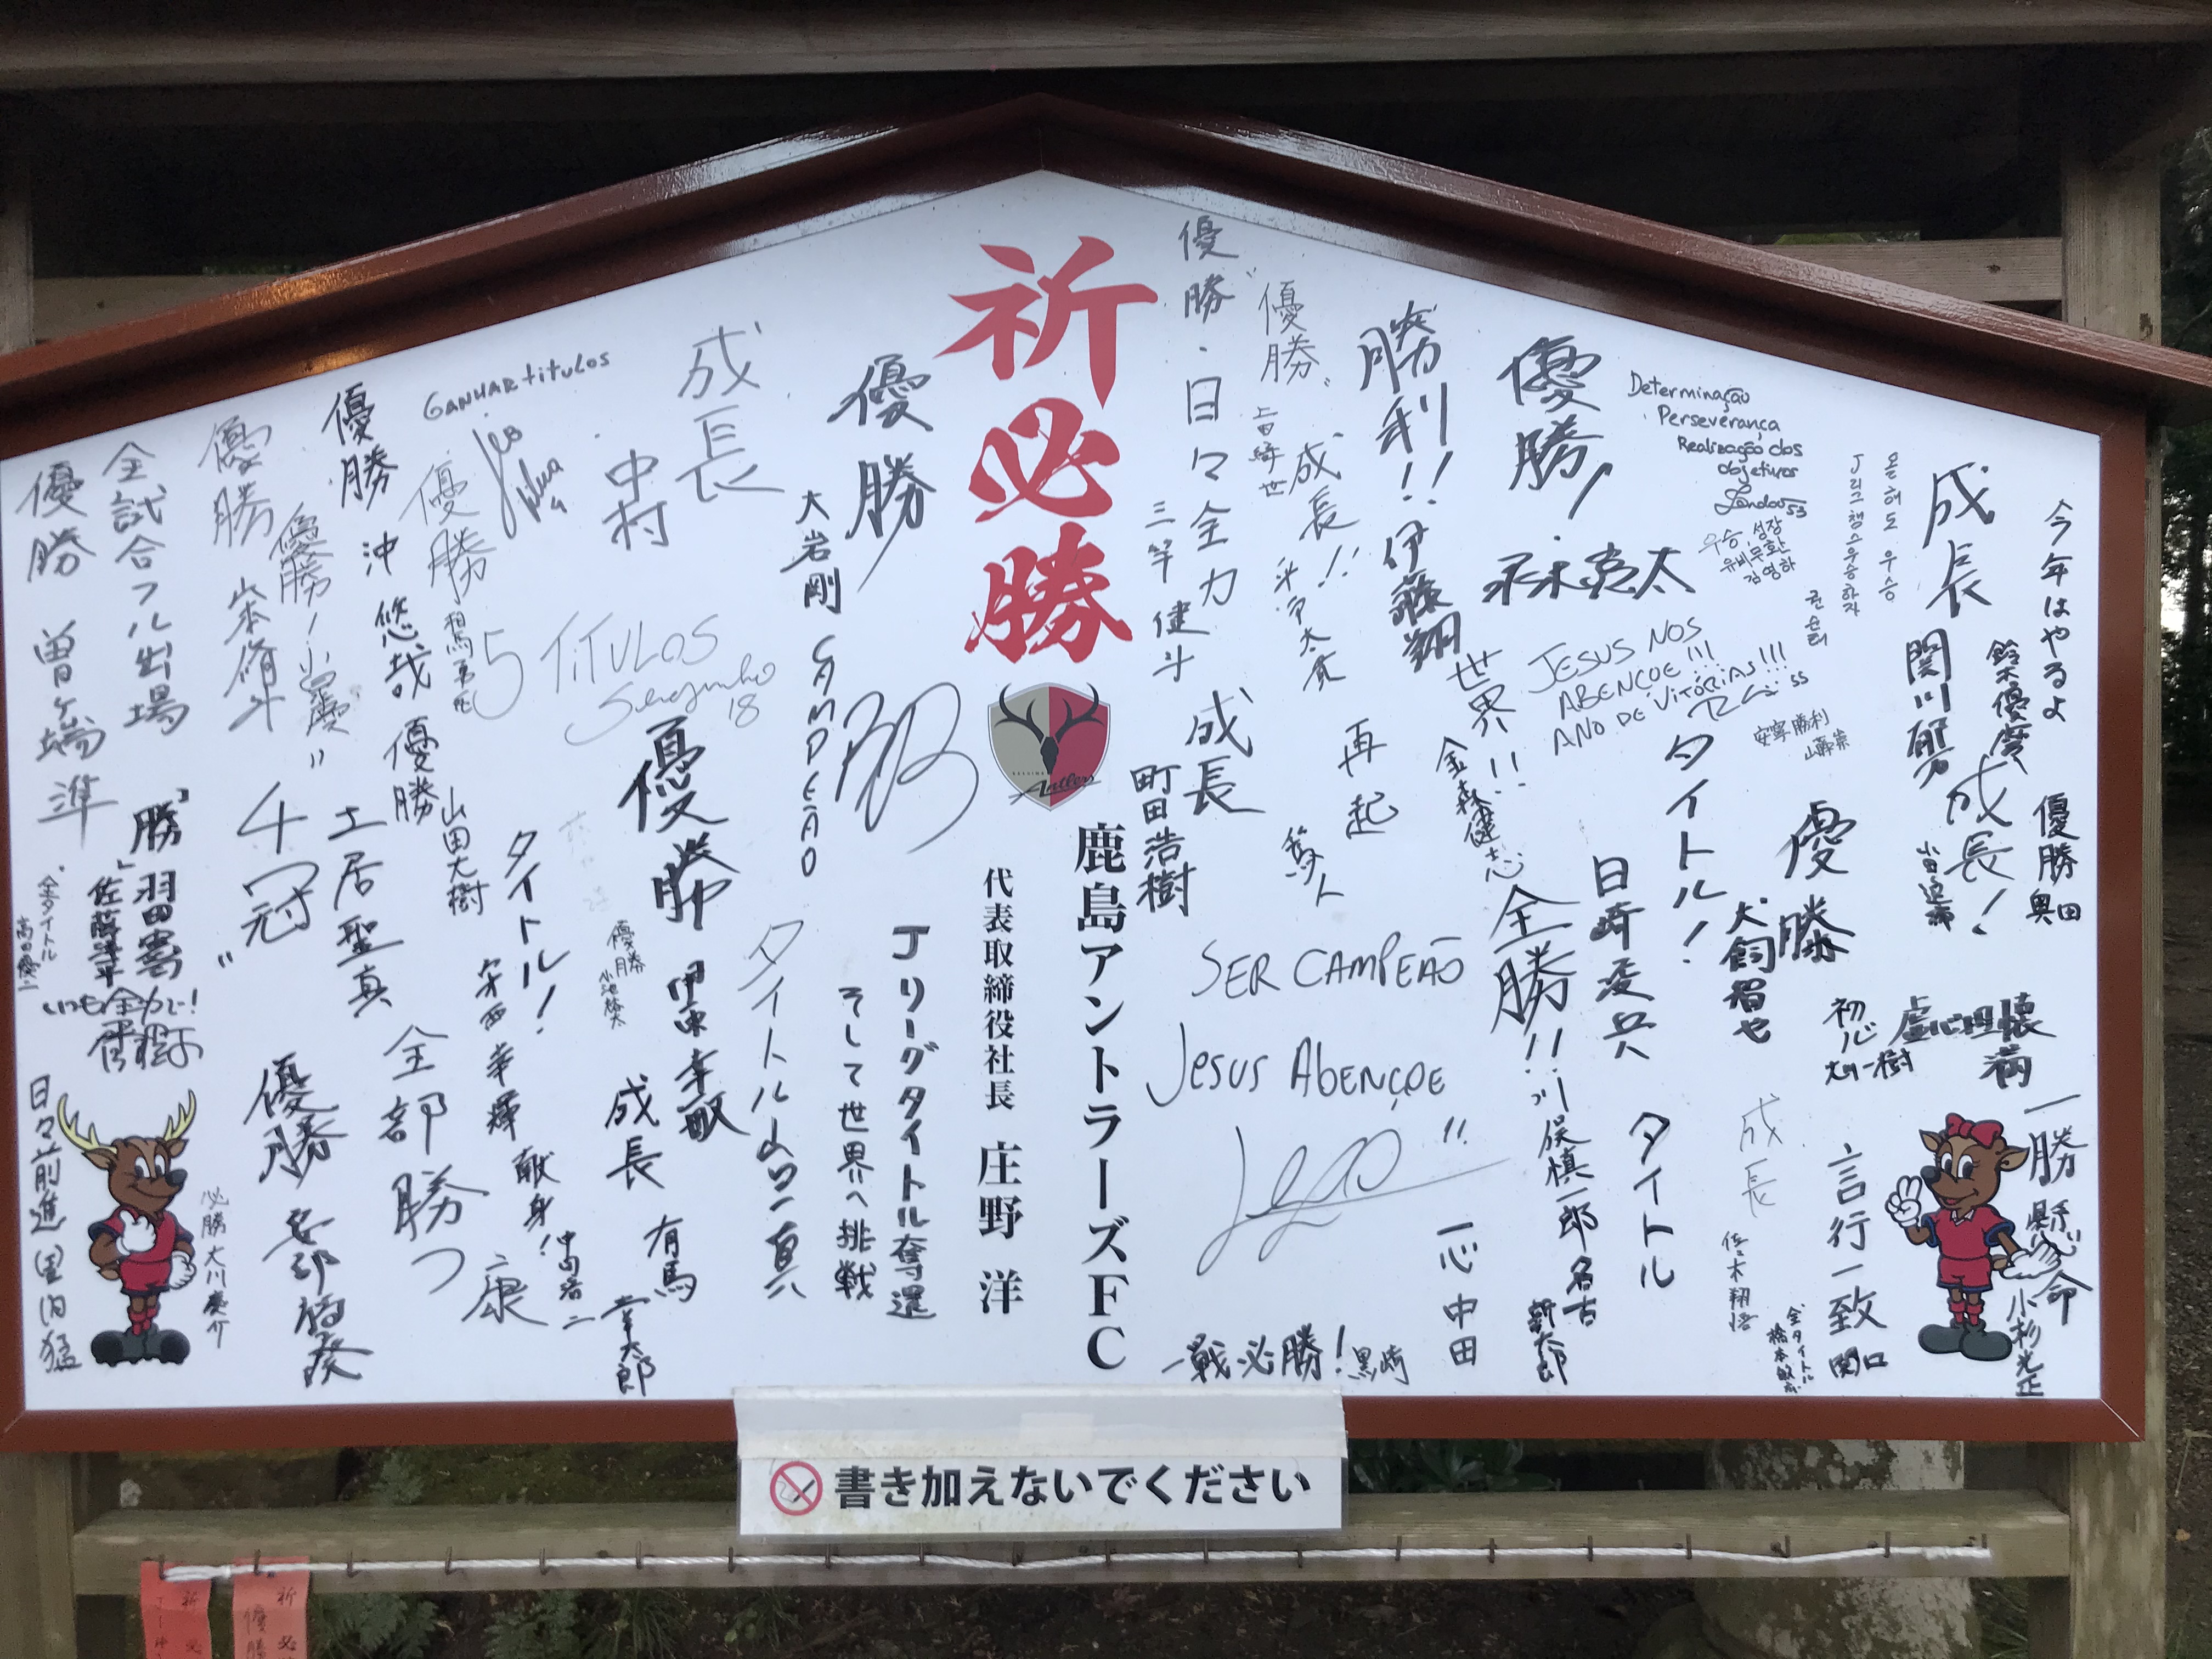 祈必勝
鹿島アントラーズFC
代表取締役社長 庄野 洋
Jリーグタイトル奪還
そして世界へ挑戦
優勝
大岩剛
CAMPEÃO
成長
中村
GANHAR titulos
Leo Silva 4
優勝
沖 悠哉
優勝
相馬
5 TITULOS
Serginho 18
優勝
山本脩斗
優勝! 小田
全試合フル出場
優勝
曽ヶ端 準
"勝"
羽田憲司
佐藤洋平
全タイトル
高田優二
いつも全力で!
4冠
土居聖真
優勝
山田大樹
タイトル!
宗西幸輝
優勝
伊東幸敏
優勝
小池裕太
タイトル
全部勝つ
康
献身!
中田浩二
成長
有馬
幸太郎
優勝
安部裕葵
日々前進
里内猛
必勝
大川慶介
優勝・日々全力
三竿 健斗
"優勝"
上田綺世
成長!!
平戸太貴
勝利!!
伊藤翔
優勝!
永木亮太
Determinação
Perseverança
Realização dos
objetivos
Leandro 53
우승, 성장
유비무환
김영하
올해도 우승
J리그 챔스우승하자
권순태
成長
関川郁万
今年はやるよ
鈴木優磨
成長
町田浩樹
再起
篤人
世界!!
金森健志
JESUS NOS
ABENÇOE!!!
ANO DE VITÓRIAS!!!
安寧勝利
タイトル!
犬飼智也
優勝
成長!
小田逸稀
優勝
奥田
SER CAMPEÃO
Jesus AbENÇOE
Léo
全勝!!
川俣慎一郎
日崎凌兵
名古新太郎
タイトル
初心
大川一樹
虚心坦懐
満
成長
佐々木翔悟
言行一致
関口
全タイトル
橋本
一勝懸命
小杉光正
一戦必勝!
黒崎
一心
中田
書き加えないでください
祈 必
優勝
祈 必